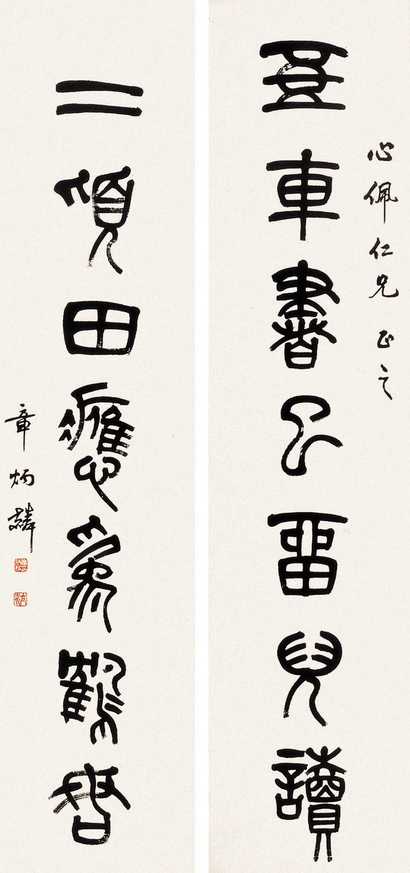 心佩仁兄正之
五車書已畱兒讀
二頃田應為鶴謀
章炳麟